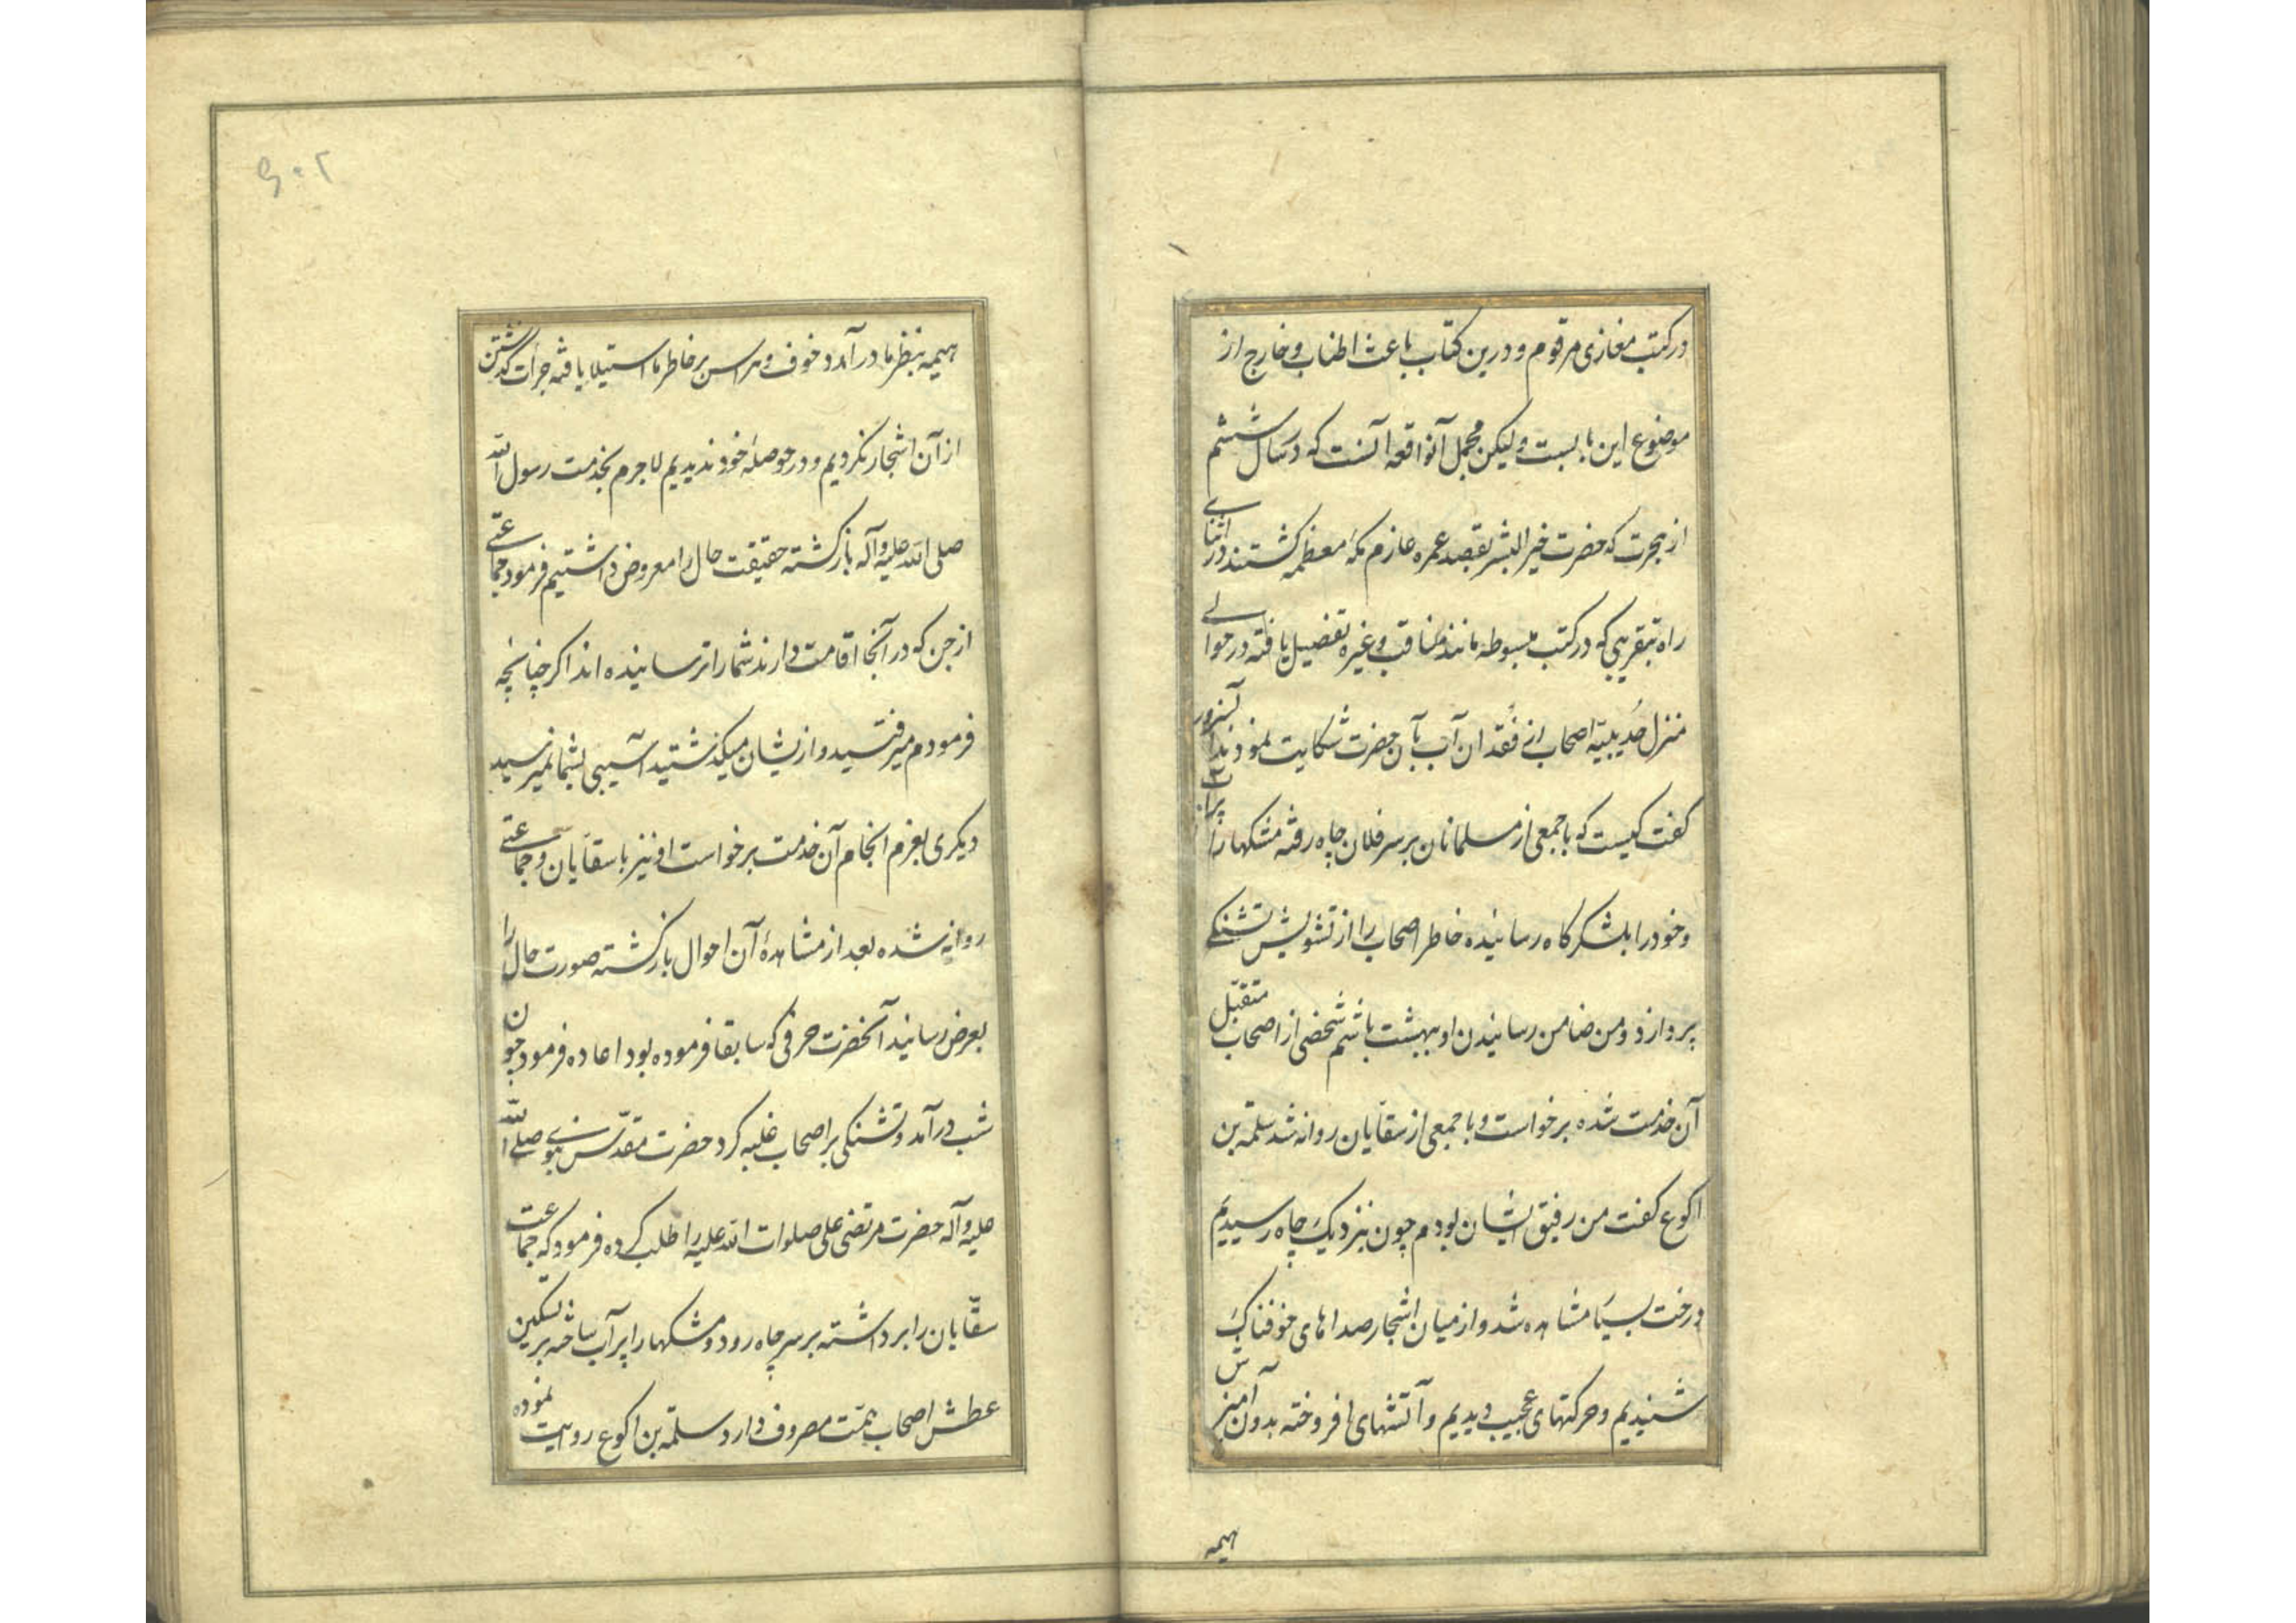 در کتب مغازی مرقوم و درین کتاب باعث اطناب و خارج از
موضوع این بابست و لیکن مجمل آنواقعه آنست که در سال ششم
از هجرت که حضرت خیر البشر بقصد عمره عازم مکهٔ معظمه کشتند در اثنای
راه بتقریبی که در کتب مبسوطه مانند مناقب و غیره تفصیل یافته در حوالی
منزل حُدیبیّه اصحاب از فُقدان آب بآن حضرت شکایت نمودند آنسرور
کفت کیست که با جمعی از مسلمانان بر سر فلان چاه رفته مشکها را پر آب
و خود را بلشکرکاه رسانیده خاطر اصحاب را از تشویش تشنکی
پردازد و من ضامن رسانیدن او ببهشت باشم شخصی از اصحاب متقبّل
آن خدمت شده برخواست و با جمعی از سقّایان روانه شد سلمة بن
اکوع کفت من رفیق ایشان بودم چون بنزدیک چاه رسیدیم
درخت بسیار مشاهده شد و از میان اشجار صداهای خوفناک
شنیدیم و حرکتهای عجیب دیدیم و آتشهای افروخته بدون آمیزش
هیمه
۲۰۹
هیمه بنظر ما در آمد و خوف و هراس بر خاطر ما استیلا یافته جرأت کذشتن
از آن اشجار نکردیم و در حوصلهٔ خود ندیدیم لا جرم بخدمت رسول الله
صلی الله علیه و آله بازکشته حقیقت حال را معروض داشتیم فرمود جماعتی
از جن که در آنجا اقامت دارند شما را ترسانیده اند اکر چنانچه
فرمودم میرفتید و ازیشان میکذشتید آسیبی بشما نمیرسید
دیکری بعزم انجام آن خدمت برخواست او نیز با سقّایان و جماعتی
روانه شده بعد از مشاهدهٔ آن احوال بازکشته صورت حال را
بعرض رسانید آنحضرت حرفی که سابقا فرموده بود اعاده فرمود چون
شب در آمد و تشنکی بر اصحاب غلبه کرد حضرت مقدّس نبوی صلی الله
علیه و آله حضرت مرتضی علی صلوات الله علیه را طلب کرده فرمود که جماعت
سقّایان را برداشته بر سر چاه رود و مشکها را پر آب ساخته بر تسکین
عطش اصحاب همّت مصروف دارد سلمة بن اکوع روایت نموده